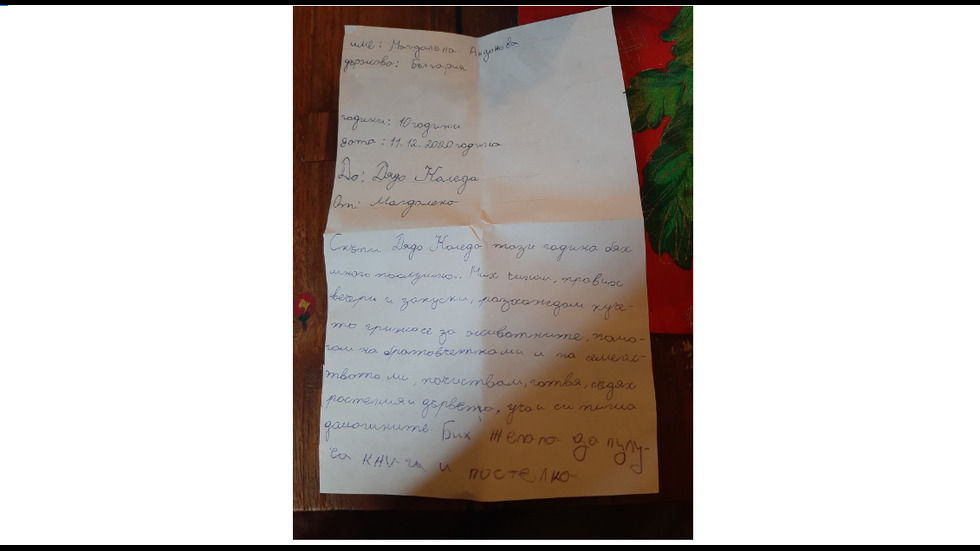 име: Магдалена Андонова
държава: България
годики: 10 години
дата: 11.12.2020 година
До: Дядо Коледа
От: Магдалена
Скъпи Дядо Коледа тази година бях
много послушна. Мих чинии, правих
вечери и закуски, разхождам куче-
то грижасе за животните, пома-
гам на братовчетками и на семейс-
твото ми, почиствам, готвя, садях
растения и дървета, уча и си пиша
домашните. Бих желала да пулу-
ча и постелка